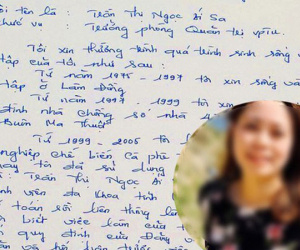 tôi tên là : Trần Thị Ngọc Ái Sa
chức vụ : Trưởng phòng Quản trị VPTU.
Tôi xin tường trình quá trình sinh sống
tập của tôi như sau :
Từ năm 1975 - 1997 tôi sinh sống và
tập ở Lâm Đồng
Từ năm 1997 - 1999 tôi
đình nhà chồng số nhà 4
Buôn Ma Thuột
Từ 1999 - 2005 tôi
nghiệp chế biến Cà phê
nay tôi đã sử dụng
: Trần Thị Ngọc
viên đa khoa tỉnh
toán rồi liên thông lên
biết việc làm của
quy định của Đảng